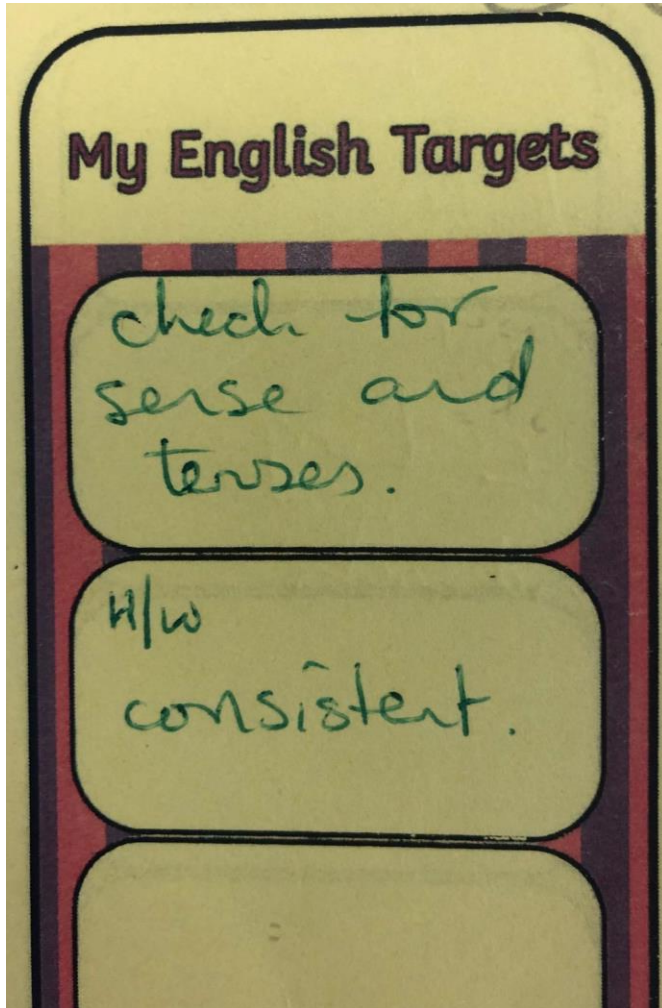 My English Targets
check for
sense and
tenses.
H/W
consistent.